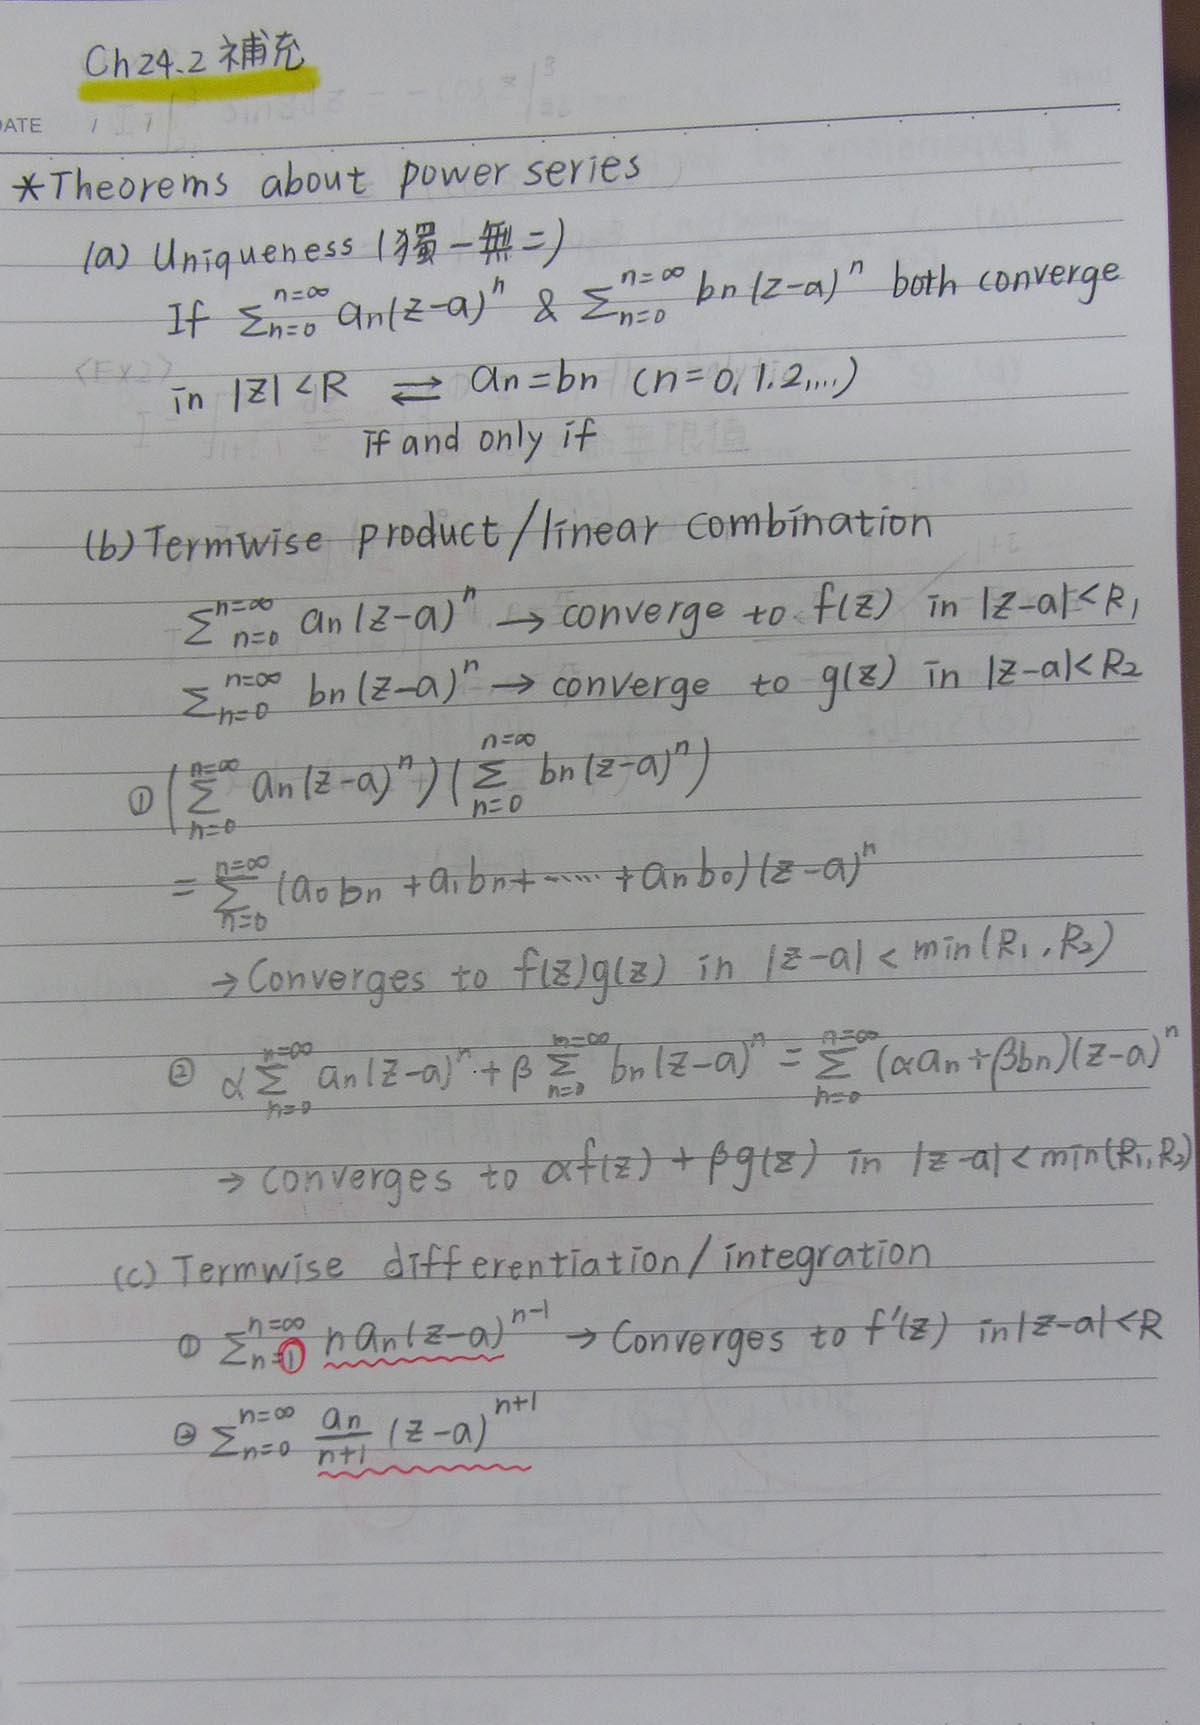 Ch24.2 補充
DATE / /
*Theorems about power series
(a) Uniqueness (獨一無二)
If Σ_{n=0}^{n=∞} an(z-a)^n & Σ_{n=0}^{n=∞} bn(z-a)^n both converge
in |z|<R ⇄ an=bn (n=0,1.2,....)
if and only if
(b) Termwise product/linear combination
Σ_{n=0}^{n=∞} an(z-a)^n → converge to f(z) in |z-a|<R1
Σ_{n=0}^{n=∞} bn(z-a)^n → converge to g(z) in |z-a|<R2
① (Σ_{n=0}^{n=∞} an(z-a)^n)(Σ_{n=0}^{n=∞} bn(z-a)^n)
= Σ_{n=0}^{n=∞} (a0bn+a1bn+······+anb0)(z-a)^n
→ Converges to f(z)g(z) in |z-a|<min(R1,R2)
② αΣ_{n=0}^{n=∞} an(z-a)^n+βΣ_{n=0}^{n=∞} bn(z-a)^n = Σ_{n=0}^{n=∞} (αan+βbn)(z-a)^n
→ converges to αf(z)+βg(z) in |z-a|<min(R1,R2)
(c) Termwise differentiation/integration
① Σ_{n=1}^{n=∞} nan(z-a)^{n-1} → Converges to f'(z) in|z-a|<R
② Σ_{n=0}^{n=∞} an/n+1 (z-a)^{n+1}